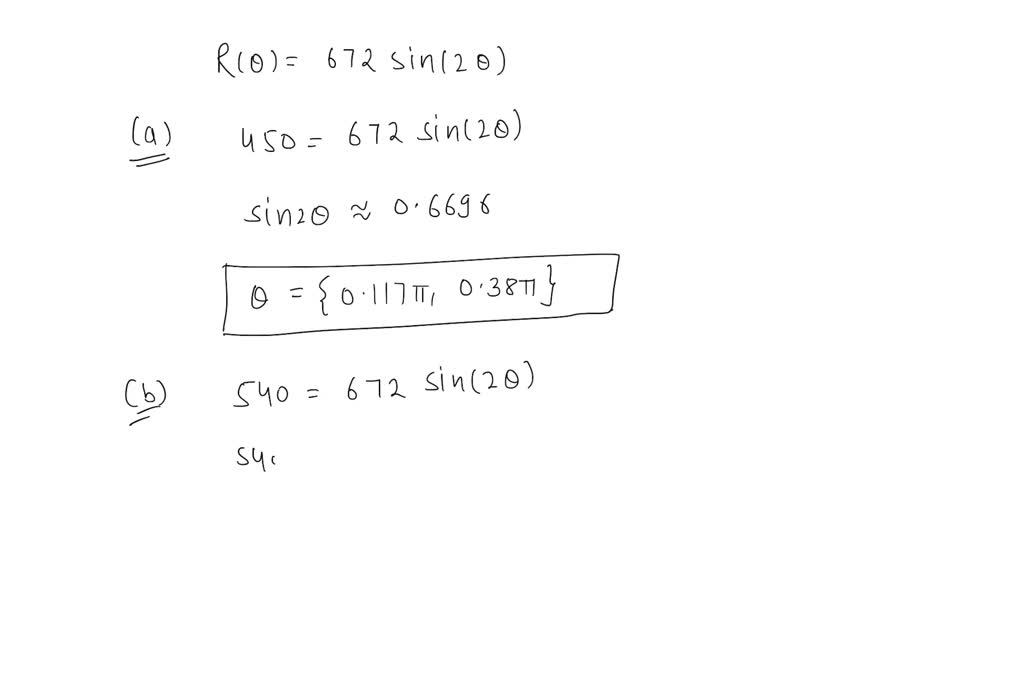 R(θ) = 672 sin(2θ)
(a) 450 = 672 sin(2θ)
sin2θ ≈ 0.6696
θ = {0.117π, 0.38π}
(b) 540 = 672 sin(2θ)
54